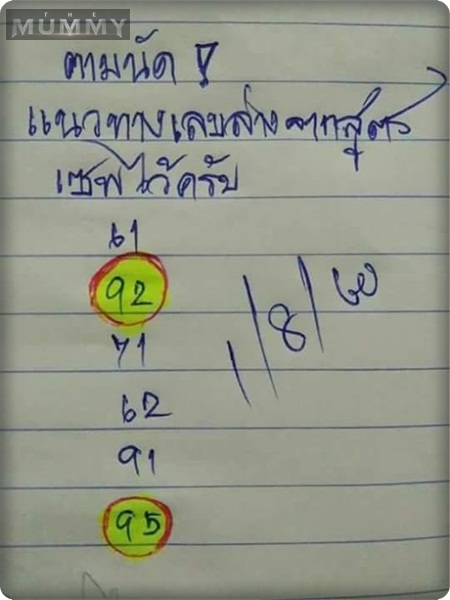 THE
MUMMY
ตามนัด !
แนวทางเลขล่าง จากสูตร
เซฟไว้ครับ
61
92
71
62
91
95
1/8/60